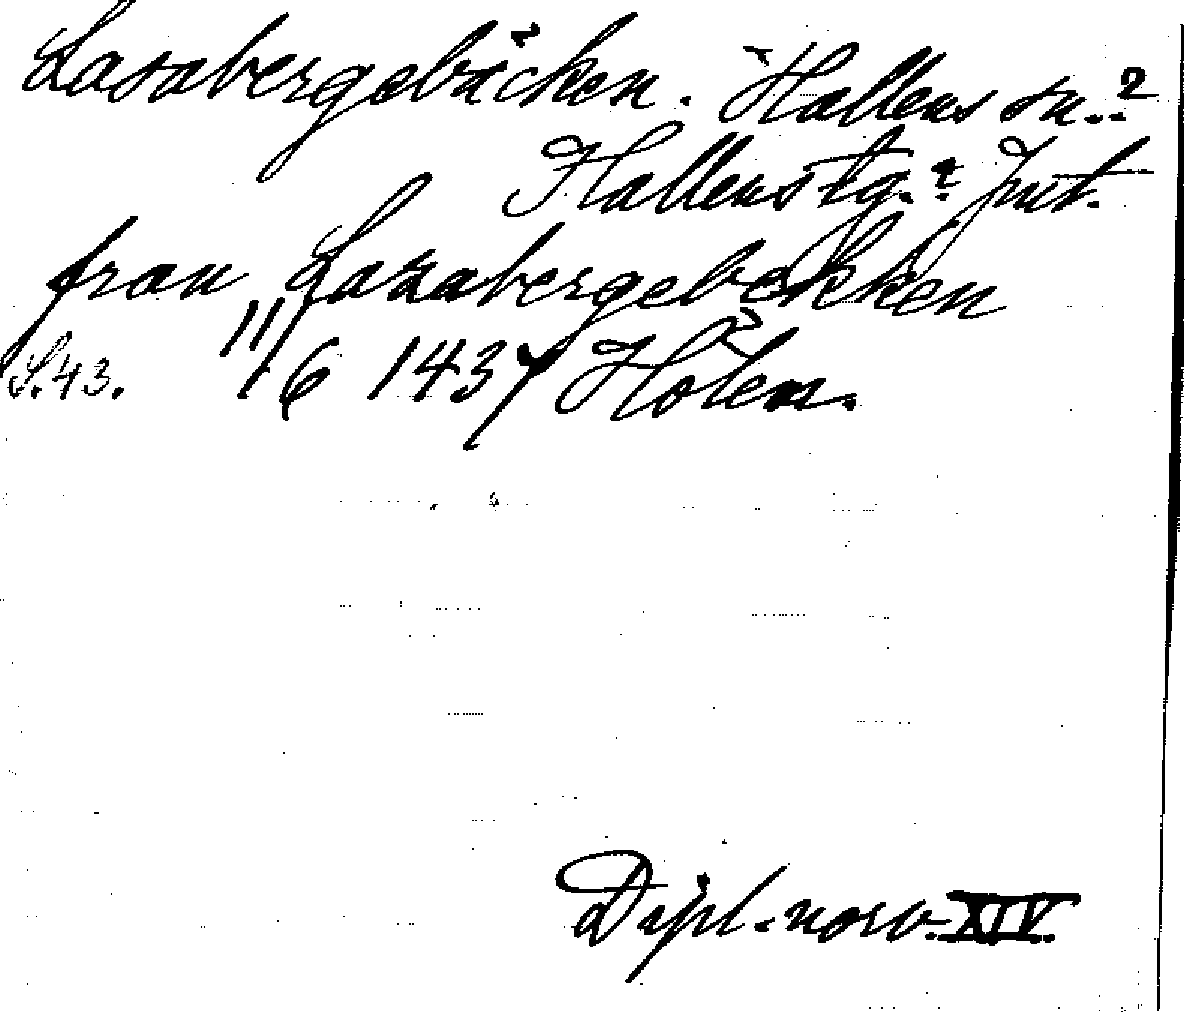 Lasabergebäcken. Hallens sn.?
Hallens tg.? Jmt.
fran Lasabergebekken
S. 43. 11/6 1437 Holem.
Dipl. norv. XIV.